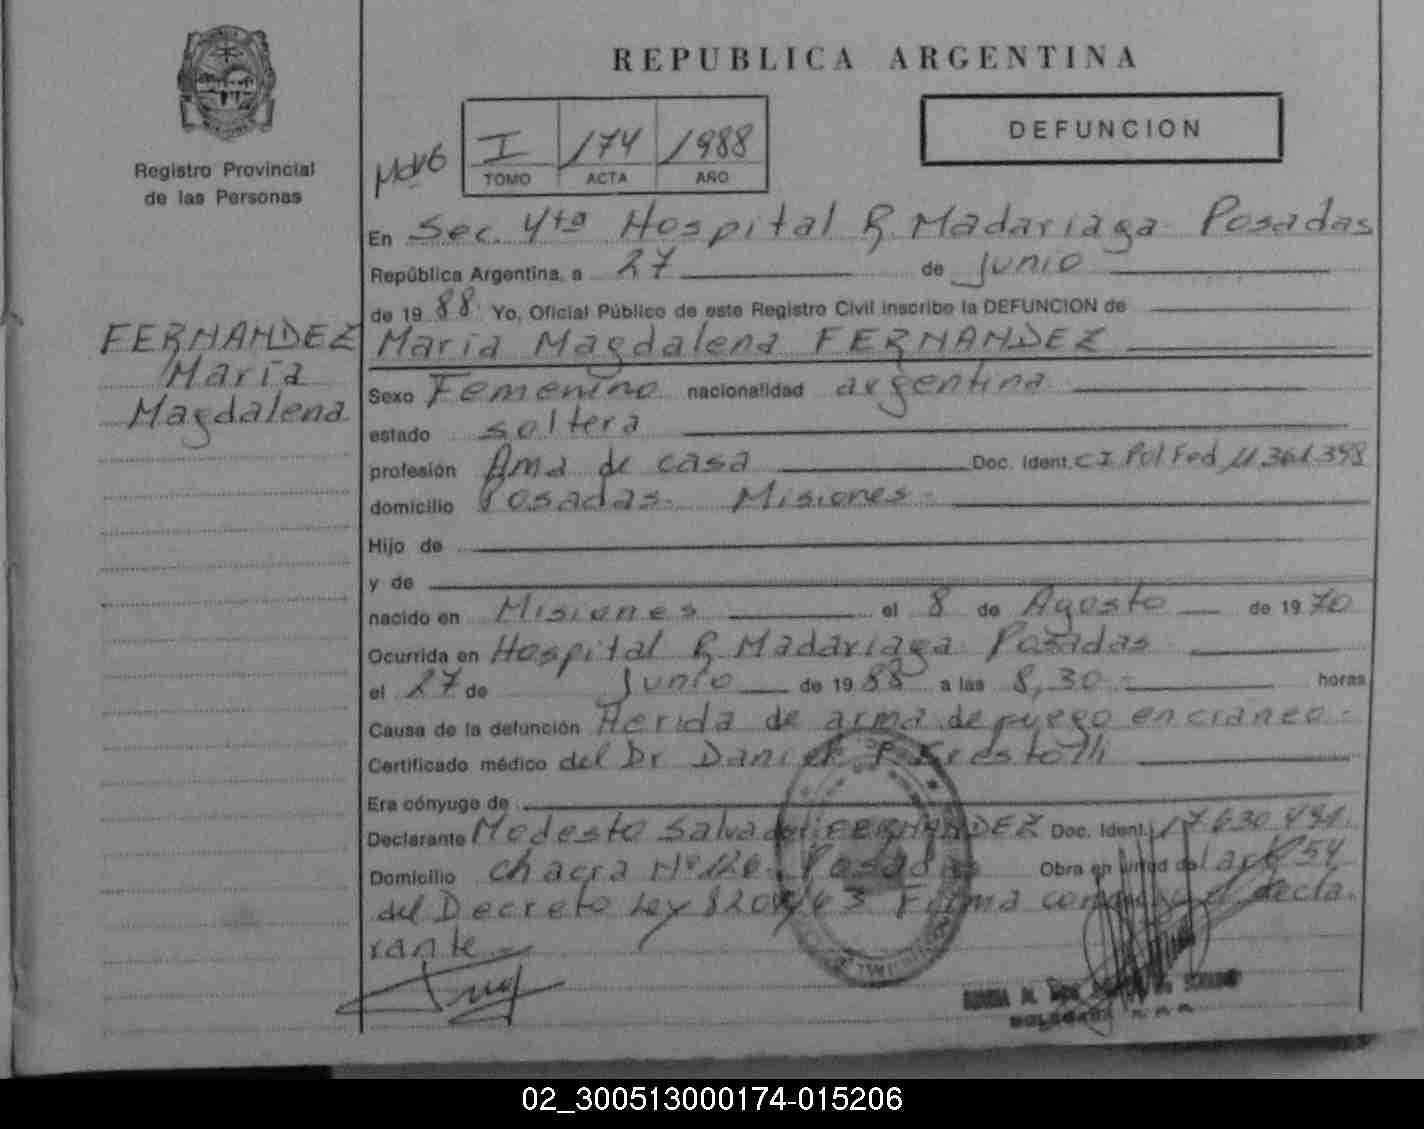 REPUBLICA ARGENTINA
DEFUNCION
Registro Provincial
de las Personas
I 174 1988
TOMO ACTA AÑO
En Sec. 4ta Hospital R. Madariaga Posadas
República Argentina, a 27 de junio
de 1988. Yo, Oficial Público de este Registro Civil inscribo la DEFUNCION de
FERNANDEZ
Maria
Magdalena
Maria Magdalena FERNANDEZ
Sexo Femenino nacionalidad argentina
estado soltera
profesión Ama de casa Doc. Ident. CI Pol Fed 11361398
domicilio Posadas. Misiones-
Hijo de
y de
nacido en Misiones el 8 de Agosto de 1970
Ocurrida en Hospital R. Madariaga Posadas
el 27 de Junio de 1988 a las 8,30.- horas
Causa de la defunción Herida de arma de fuego en craneo-
Certificado médico del Dr Daniel
Era cónyuge de
Declarante Modesto Salvador FERNANDEZ Doc. Ident. 17630491
Domicilio chacra Nº 126. Posadas Obra en virtud del art 54
del Decreto Ley 8204/63 Firma conmigo el decla-
rante-
02_300513000174-015206